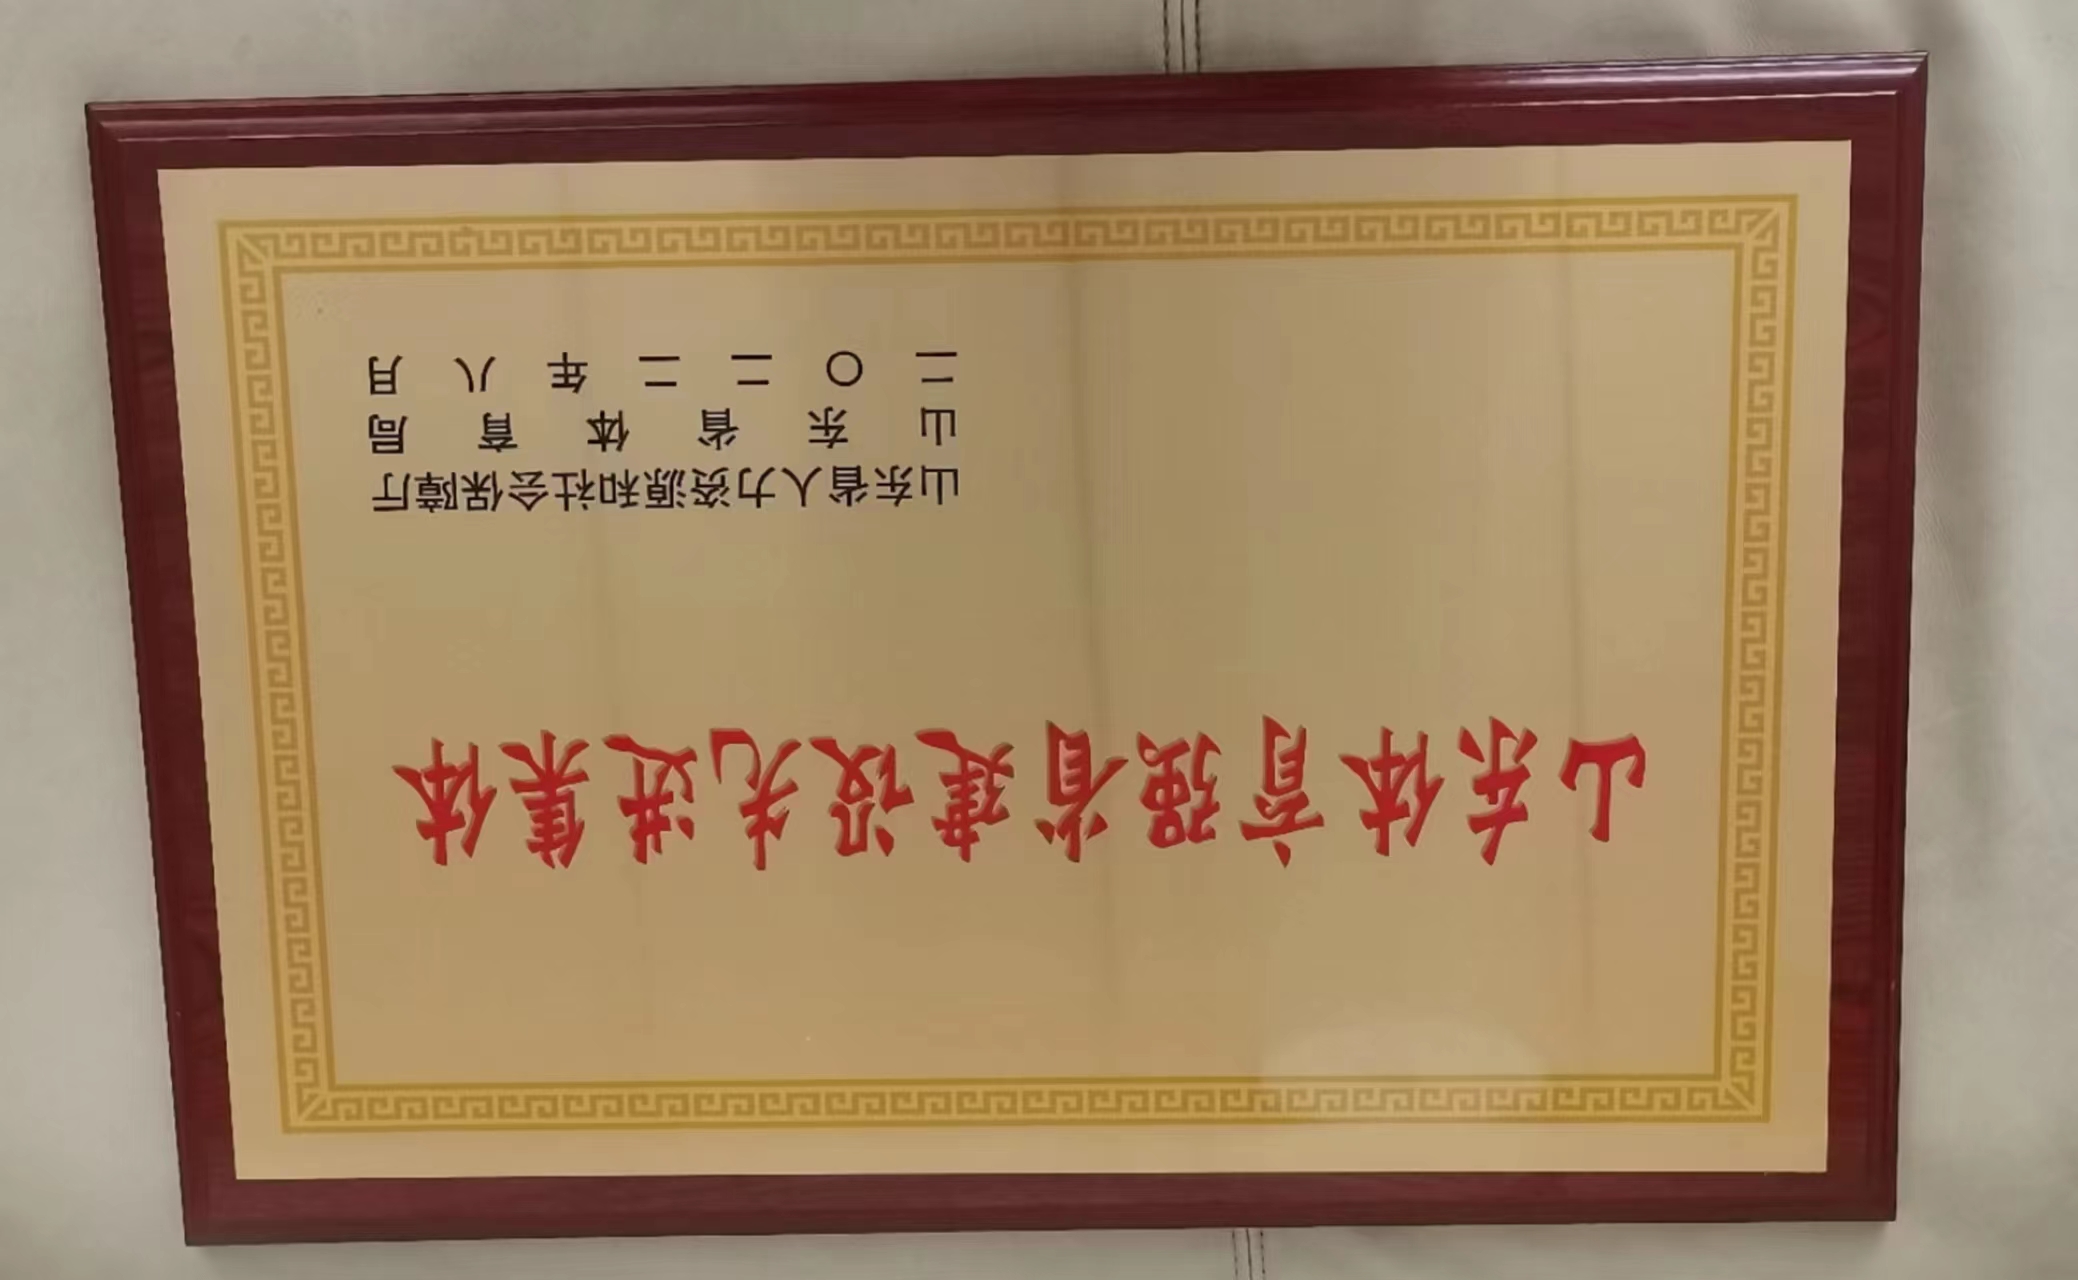 山东体育强省建设先进集体
山东省人力资源和社会保障厅
山东省体育局
二〇二二年八月